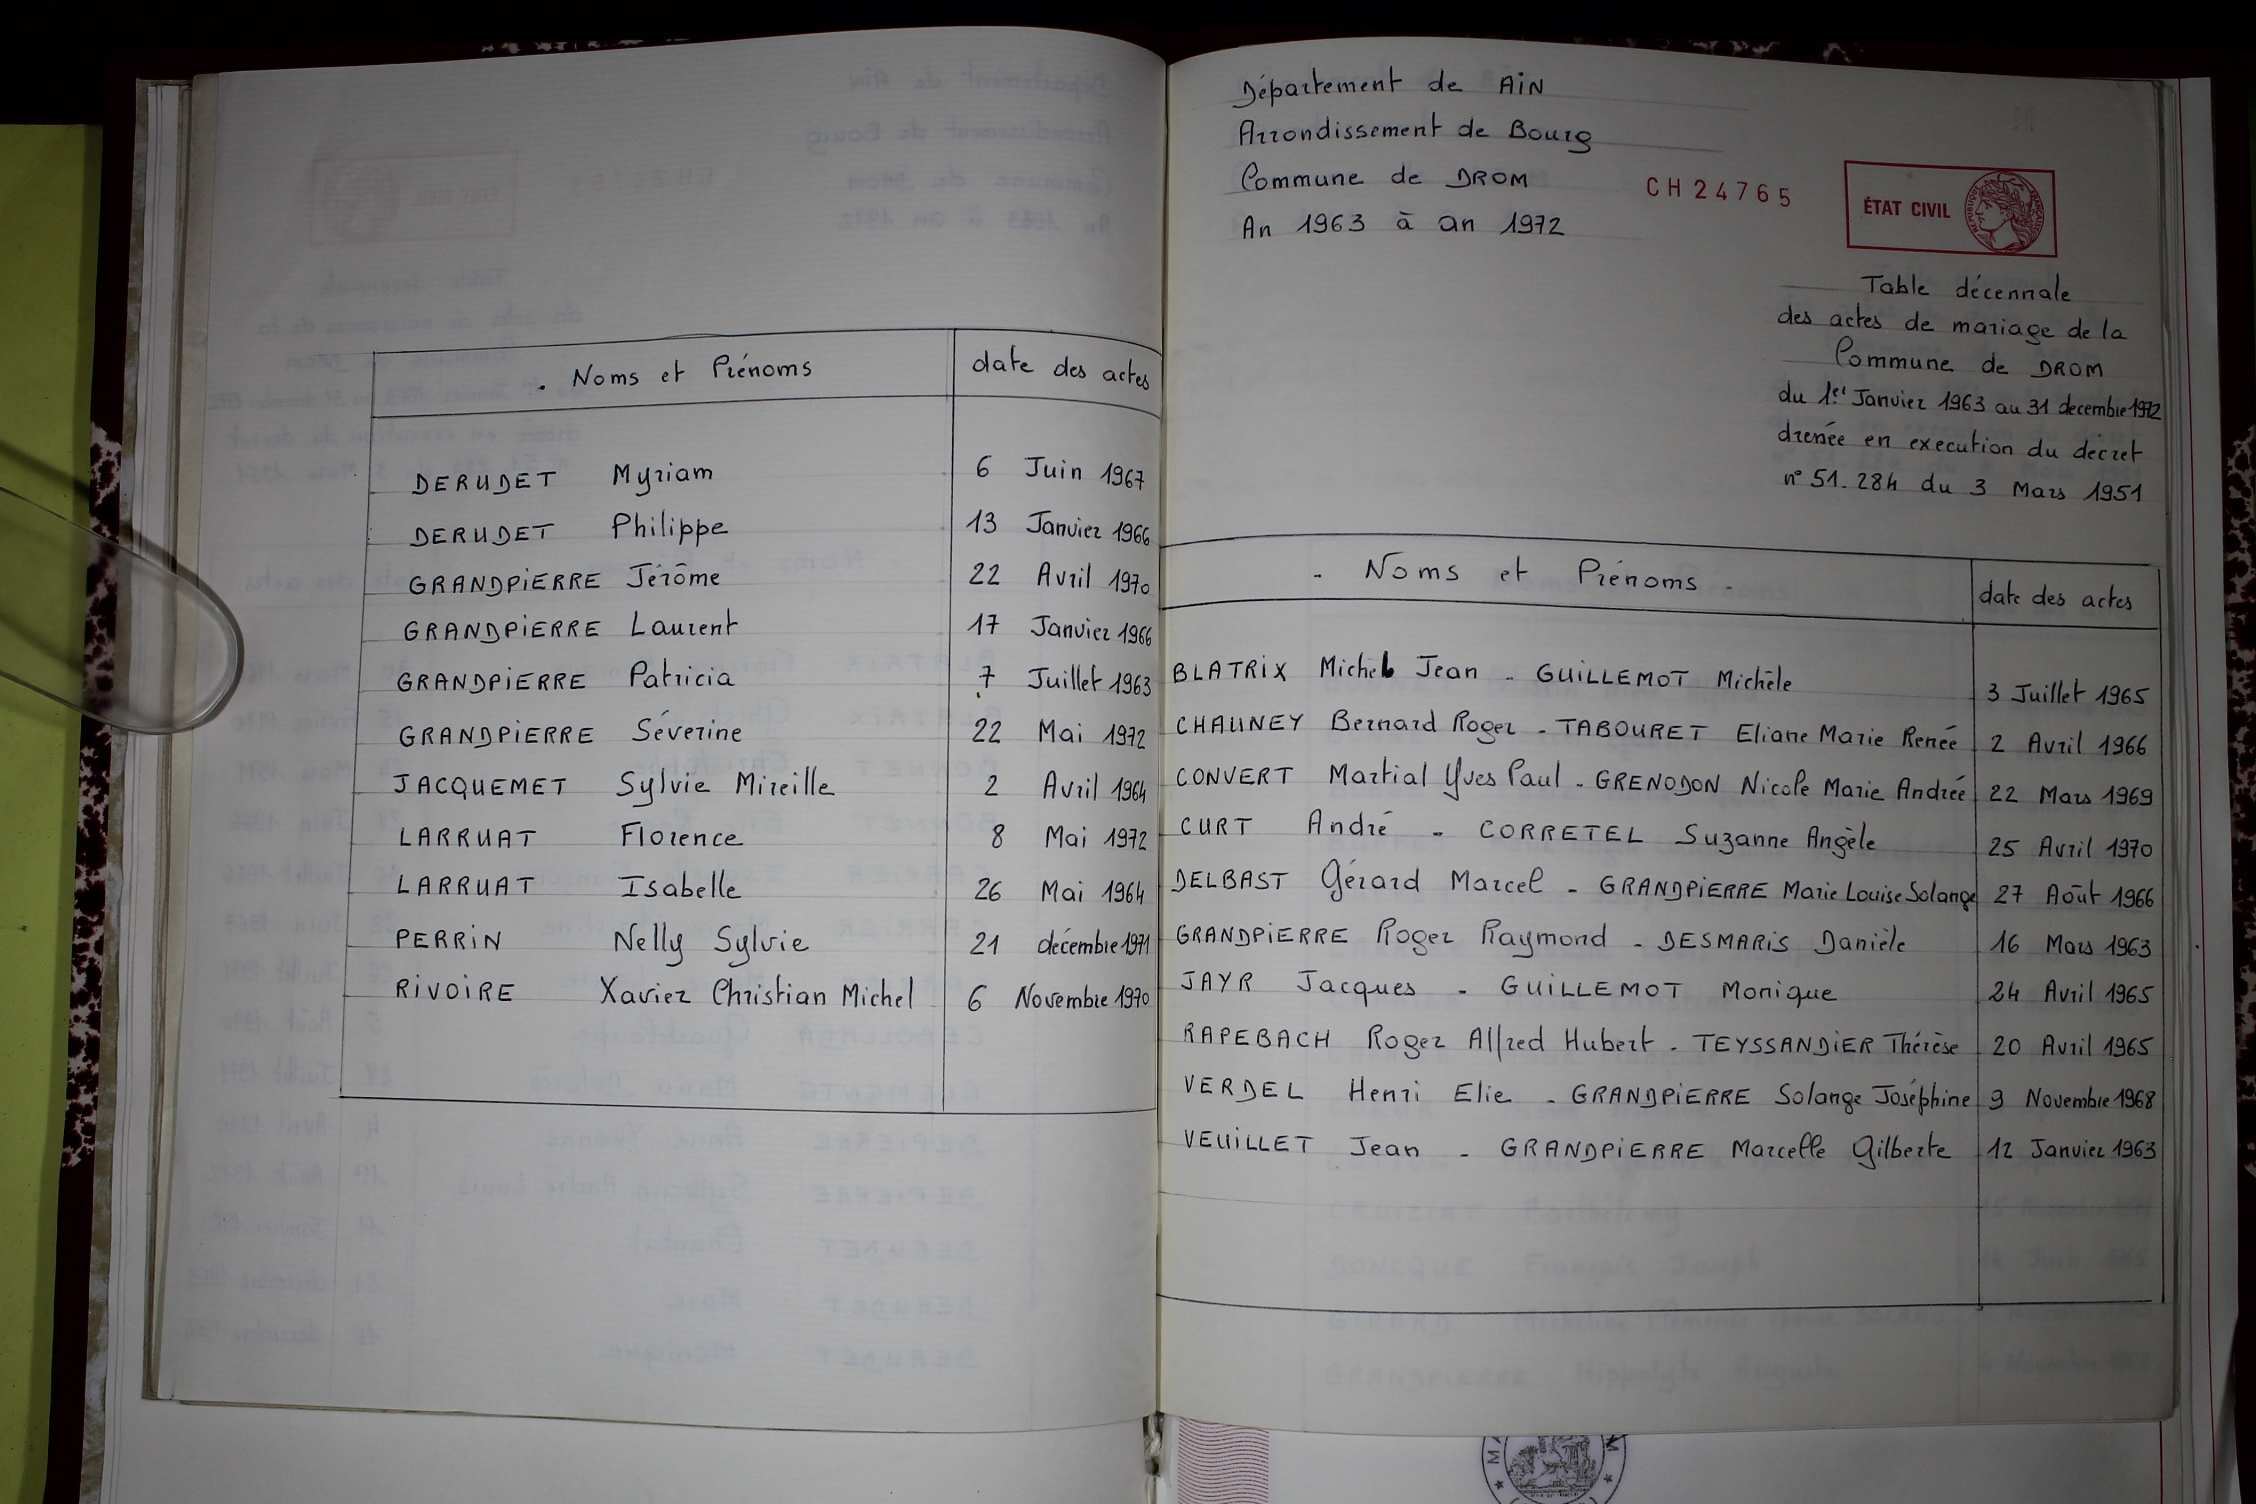 . Noms et Prénoms date des actes
DERUDET Myriam 6 Juin 1967
DERUDET Philippe 13 Janvier 1966
GRANDPIERRE Jérôme 22 Avril 1970
GRANDPIERRE Laurent 17 Janvier 1966
GRANDPIERRE Patricia 7 Juillet 1963
GRANDPIERRE Séverine 22 Mai 1972
JACQUEMET Sylvie Mireille 2 Avril 1964
LARRUAT Florence 8 Mai 1972
LARRUAT Isabelle 26 Mai 1964
PERRIN Nelly Sylvie 21 décembre 1971
RIVOIRE Xavier Christian Michel 6 Novembre 1970
Département de AIN
Arrondissement de Bourg
Commune de DROM
An 1963 à an 1972
CH24765
ÉTAT CIVIL
Table décennale
des actes de mariage de la
Commune de DROM
du 1er Janvier 1963 au 31 decembre 1972
dresée en execution du décret
n° 51.284 du 3 Mars 1951
- Noms et Prénoms - date des actes
BLATRIX Michel Jean - GUILLEMOT Michèle 3 Juillet 1965
CHAUNEY Bernard Roger - TABOURET Eliane Marie Renée 2 Avril 1966
CONVERT Martial Yves Paul - GRENODON Nicole Marie Andrée 22 Mars 1969
CURT André - CORRETEL Suzanne Angèle 25 Avril 1970
DELBAST Gérard Marcel - GRANDPIERRE Marie Louise Solange 27 Août 1966
GRANDPIERRE Roger Raymond - DESMARIS Danièle 16 Mars 1963
JAYR Jacques - GUILLEMOT Monique 24 Avril 1965
RAPEBACH Roger Alfred Hubert - TEYSSANDIER Thérèse 20 Avril 1965
VERDEL Henri Elie - GRANDPIERRE Solange Joséphine 9 Novembre 1968
VEUILLET Jean - GRANDPIERRE Marcelle Gilberte 12 Janvier 1963